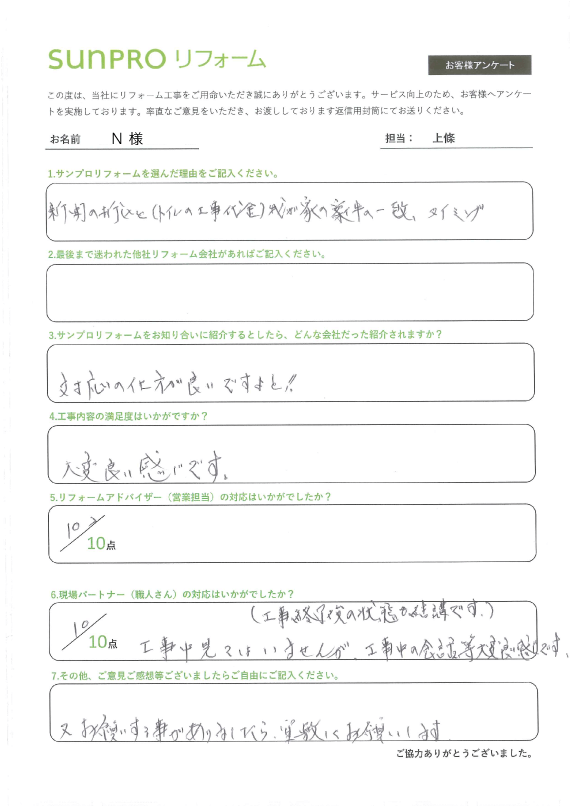 SUNPRO リフォーム
お客様アンケート
この度は、当社にリフォーム工事をご用命いただき誠にありがとうございます。サービス向上のため、お客様へアンケー
トを実施しております。率直なご意見をいただき、お渡ししております返信用封筒にてお送りください。
お名前 N 様 担当： 上條
1.サンプロリフォームを選んだ理由をご記入ください。
新聞の折込と(トイレの工事代金)我が家の条件の一致、タイミング
2.最後まで迷われた他社リフォーム会社があればご記入ください。
3.サンプロリフォームをお知り合いに紹介するとしたら、どんな会社だった紹介されますか？
対応の仕方が良いですよと!!
4.工事内容の満足度はいかがですか？
大変良い感じです。
5.リフォームアドバイザー（営業担当）の対応はいかがでしたか？
10
10点
6.現場パートナー（職人さん）の対応はいかがでしたか？
(工事終了後の状態が結構です.)
10
10点 工事中見てはいませんが、工事中の会話等大変良い感じです。
7.その他、ご意見ご感想等ございましたらご自由にご記入ください。
又お願いする事がありましたら、宜敷くお願いします
ご協力ありがとうございました。